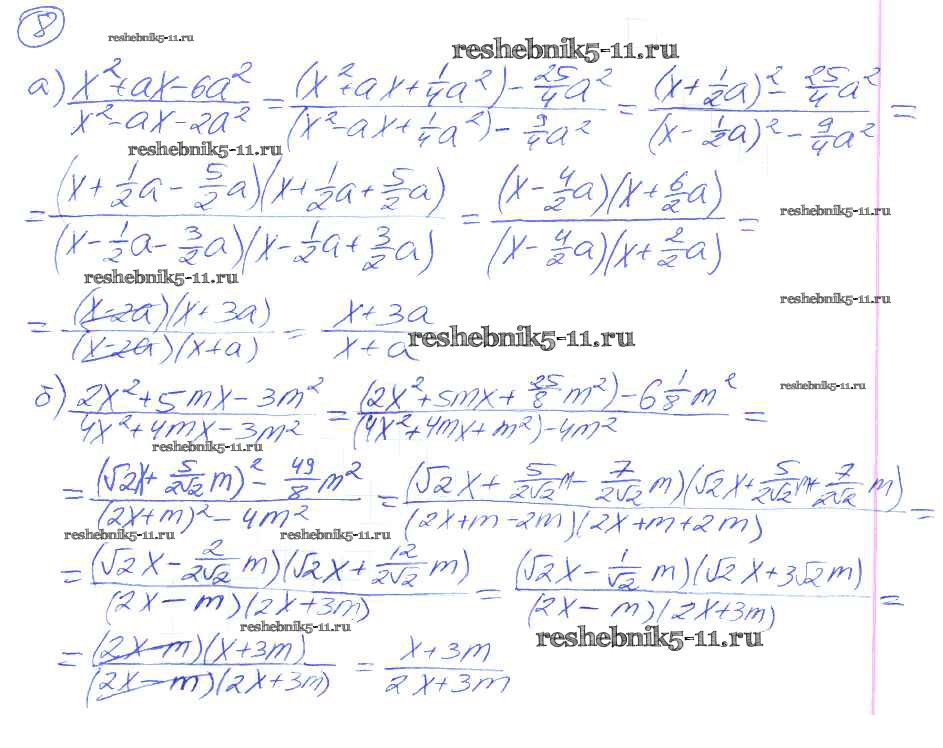 8
reshebnik5-11.ru
reshebnik5-11.ru
а) (x²+ax-6a²)/(x²-ax-2a²) = ((x²+ax+1/4a²)-25/4a²)/((x²-ax+1/4a²)-9/4a²) = ((x+1/2a)²-25/4a²)/((x-1/2a)²-9/4a²) =
reshebnik5-11.ru
= ((x+1/2a-5/2a)(x+1/2a+5/2a))/((x-1/2a-3/2a)(x-1/2a+3/2a)) = ((x-4/2a)(x+6/2a))/((x-4/2a)(x+2/2a)) =
reshebnik5-11.ru
reshebnik5-11.ru
reshebnik5-11.ru
= ((x-2a)(x+3a))/((x-2a)(x+a)) = (x+3a)/(x+a)
reshebnik5-11.ru
б) (2x²+5mx-3m²)/(4x²+4mx-3m²) = ((2x²+5mx+25/8m²)-6 1/8m²)/((4x²+4mx+m²)-4m²) =
reshebnik5-11.ru
reshebnik5-11.ru
= ((√2x+5/2√2m)²-49/8m²)/((2x+m)²-4m²) = ((√2x+5/2√2m-7/2√2m)(√2x+5/2√2m+7/2√2m))/((2x+m-2m)(2x+m+2m)) =
reshebnik5-11.ru
reshebnik5-11.ru
= ((√2x-2/2√2m)(√2x+12/2√2m))/((2x-m)(2x+3m)) = ((√2x-1/√2m)(√2x+3√2m))/((2x-m)(2x+3m)) =
reshebnik5-11.ru
reshebnik5-11.ru
= ((2x-m)(x+3m))/((2x-m)(2x+3m)) = (x+3m)/(2x+3m)